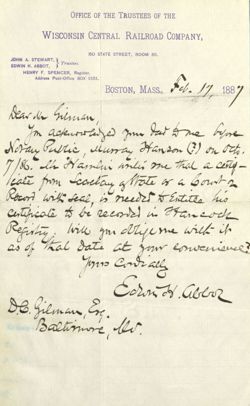 OFFICE OF THE TRUSTEES OF THE
WISCONSIN CENTRAL RAILROAD COMPANY,
50 STATE STREET, ROOM 55.
JOHN A. STEWART,
EDWIN H. ABBOT, } Trustees
HENRY F. SPENCER, Register,
Address Post-Office BOX
BOSTON, MASS., Feb. 17, 1887
Dear Mr Gilman.
You acknowledged your deed to me before
Notary Public, Murray Hanson (?) on Oct.
7/86. Mr Hamlin writes me that a certifi-
cate from Secretary of State or a Court of
Record with seal, is needed to entitle his
certificate to be recorded in Hancock
Registry. Will you oblige me with it
as of that date at your convenience?
Yours Cordially
Edwin H. Abbot
D. C. Gilman, Esq.
Baltimore, Md.